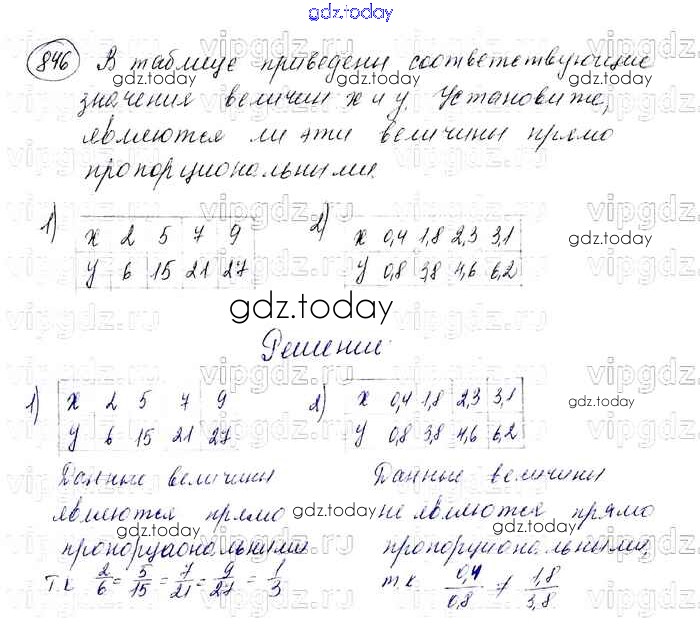 gdz.today
846 В таблице приведены соответствующие
значения величин x и y. Установите,
являются ли эти величины прямо
пропорциональными.
1)
x 2 5 7 9
y 6 15 21 27
2)
x 0,4 1,8 2,3 3,1
y 0,8 3,8 4,6 6,2
gdz.today
Решение:
1)
x 2 5 7 9
y 6 15 21 27
Данные величины
являются прямо
пропорциональными
т.к 2/6 = 5/15 = 7/21 = 9/27 = 1/3
2)
x 0,4 1,8 2,3 3,1
y 0,8 3,8 4,6 6,2
Данные величины
не являются прямо
пропорциональными,
т.к. 0,4/0,8 ≠ 1,8/3,8
gdz.today
vipgdz.ru